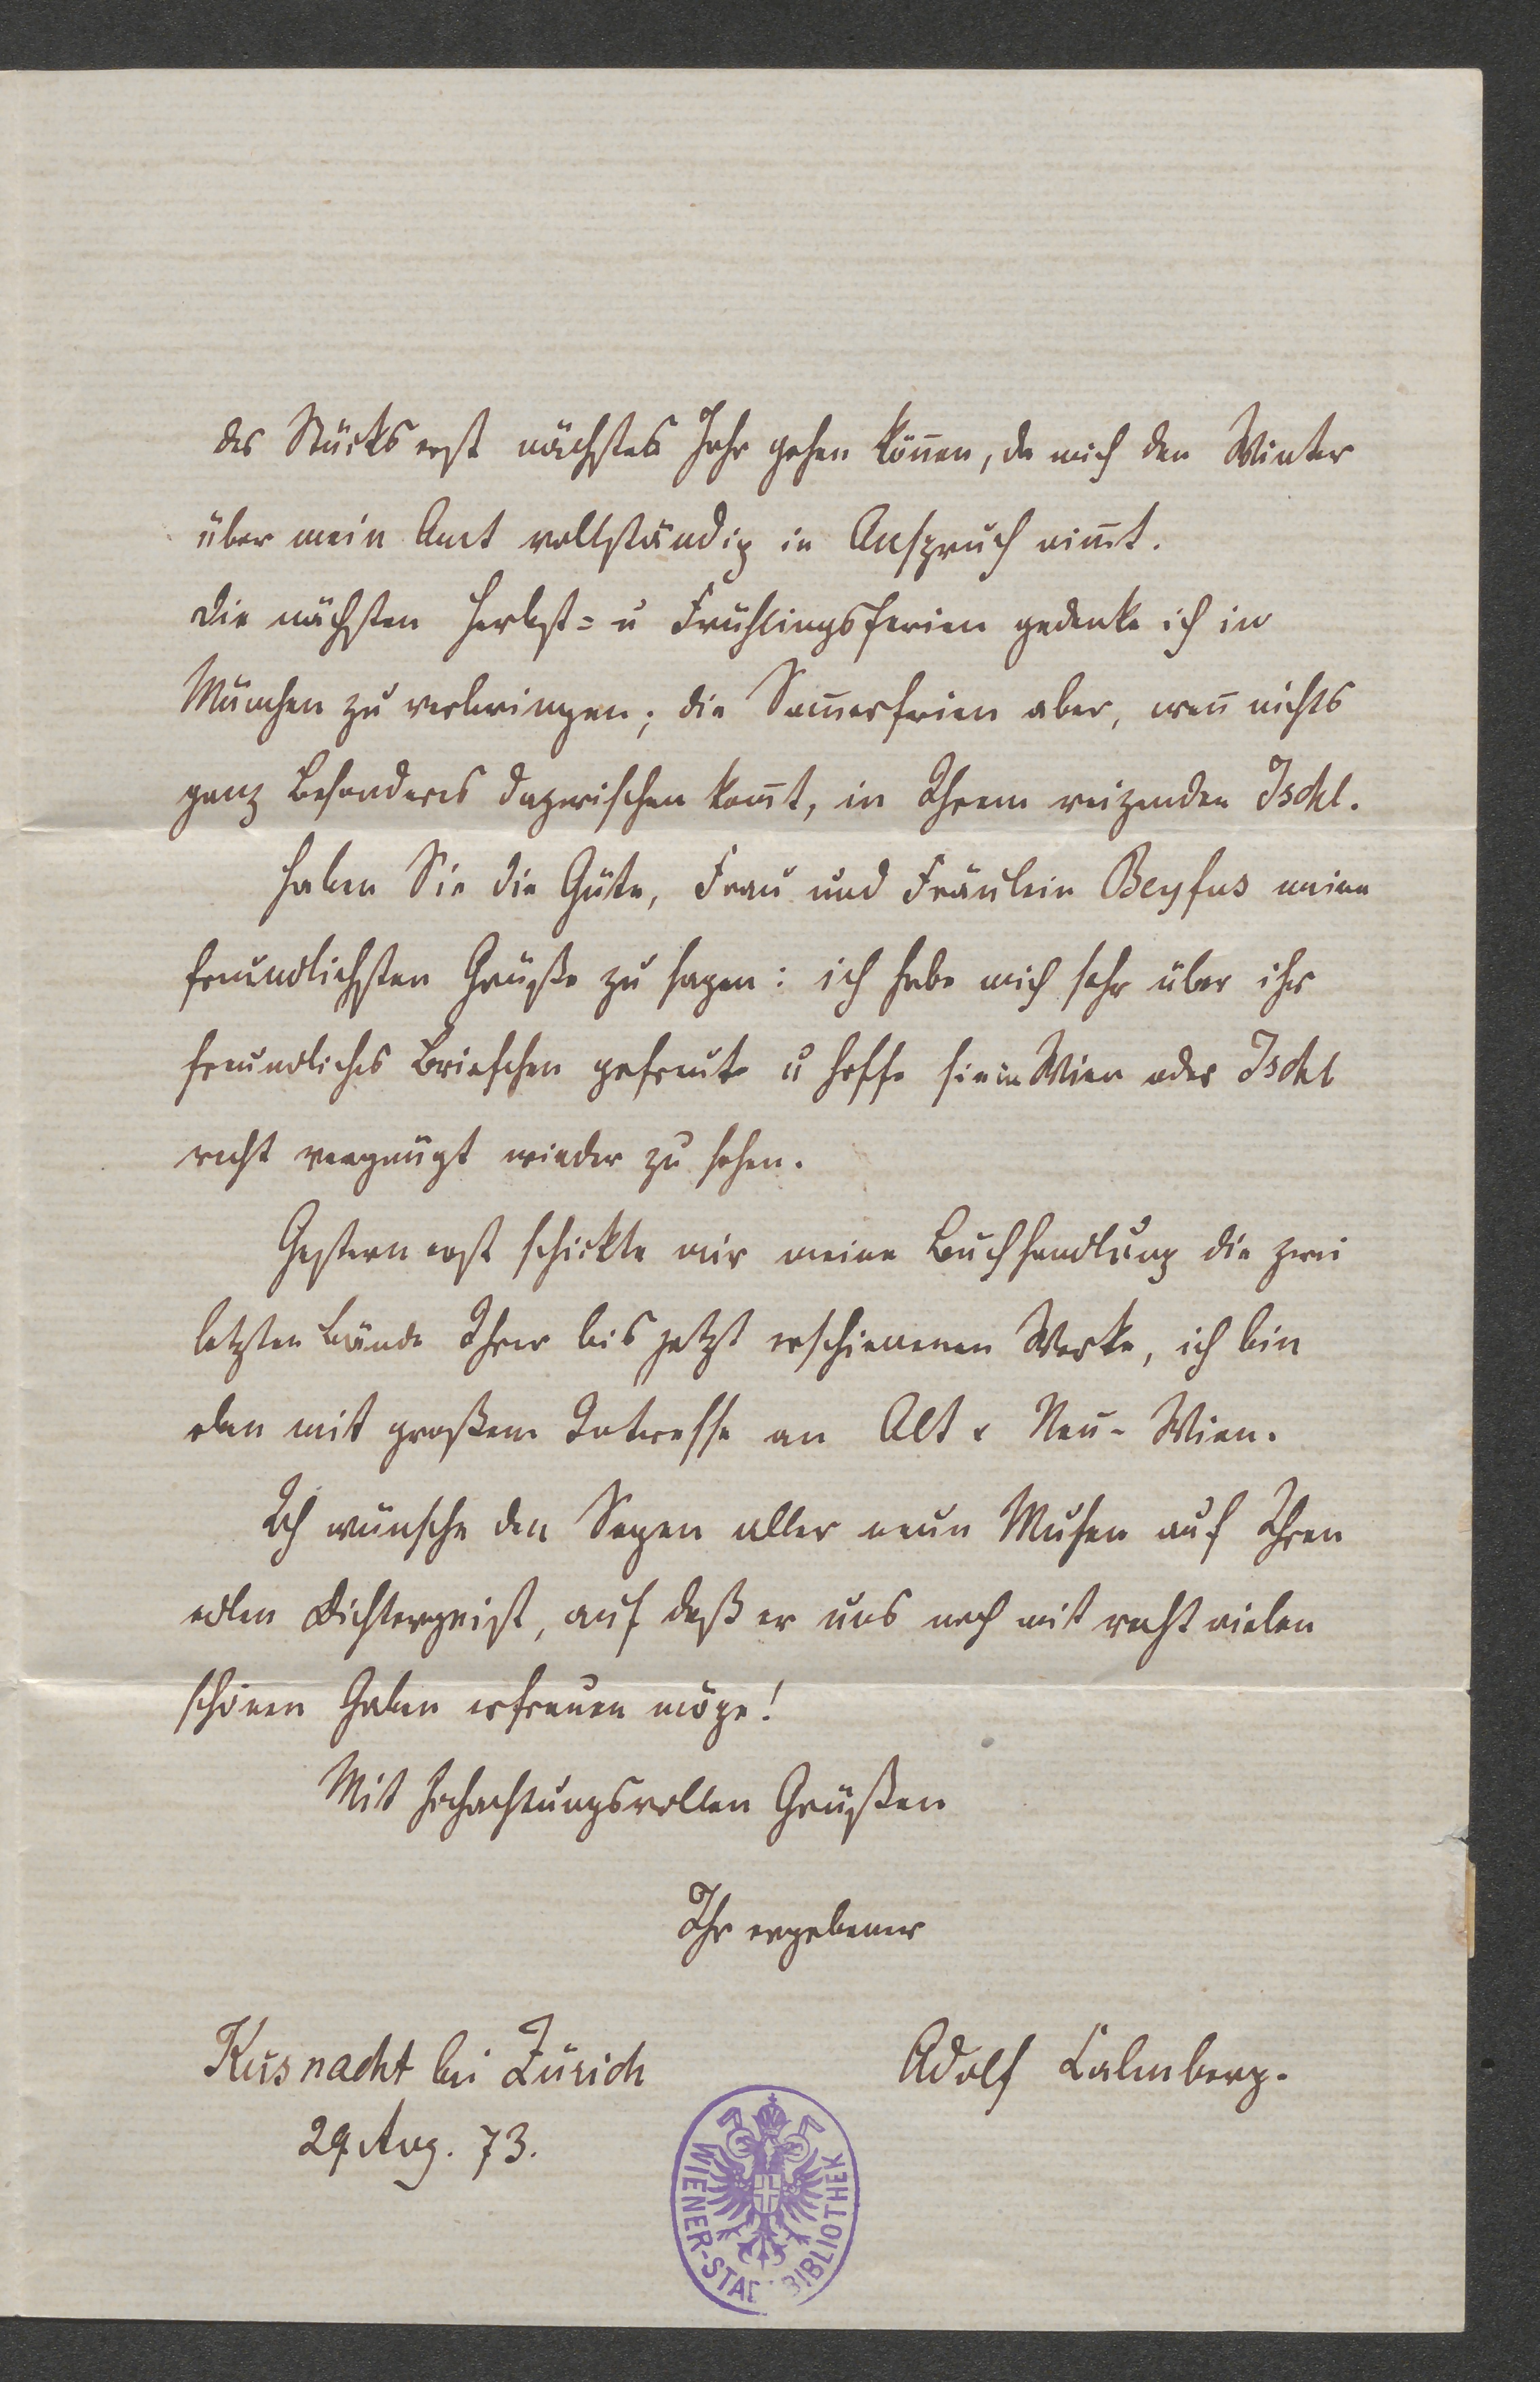 des Stücks erst nächstes Jahr gehen kön̄en, da mich den Winter
über mein Amt vollständig in Anspruch nim̄t.
Die nächsten Herbst= u Frühlingsferien gedenke ich in
München zu verbringen; die Som̄erferien aber, wen̄ nichts
ganz Besonderes dazwischen kom̄t, in Ihrem reizenden Ischl.
Haben Sie die Güte, Frau und Fräulein Beyfus meine
freundlichsten Grüße zu sagen: ich habe mich sehr über ihr
freundliches Briefchen gefreut u hoffe sie in Wien oder Ischl
recht vergnügt wieder zu sehen.
Gestern erst schickte mir meine Buchhandlung die zwei
letzten Bände Ihrer bis jetzt erschienenen Werke, ich bin
eben mit großem Interesse an Alt & Neu-Wien.
Ich wünsche den Segen aller neun Musen auf Ihren
edlen Dichtergeist, auf daß er uns noch mit recht vielen
schönen Gaben erfreuen möge!
Mit hochachtungsvollen Grüßen
Ihr ergebener
Adolf Calmberg.
Küsnacht bei Zürich
29. Aug. 73.
WIENER-STADTBIBLIOTHEK